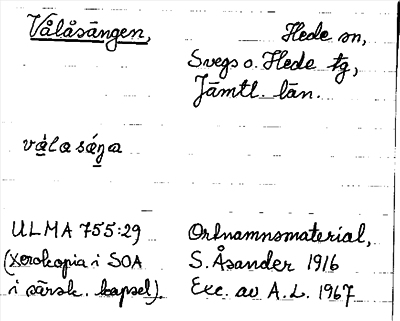 Vålåsängen, Hede sn,
Svegs o. Hede tg,
Jämtl. län.
vålasäŋa
ULMA 755:29 Ortnamnsmaterial,
(Xerokopia i SOA S. Åsander 1916
i särsk. kapsel). Exc. av A.L. 1967